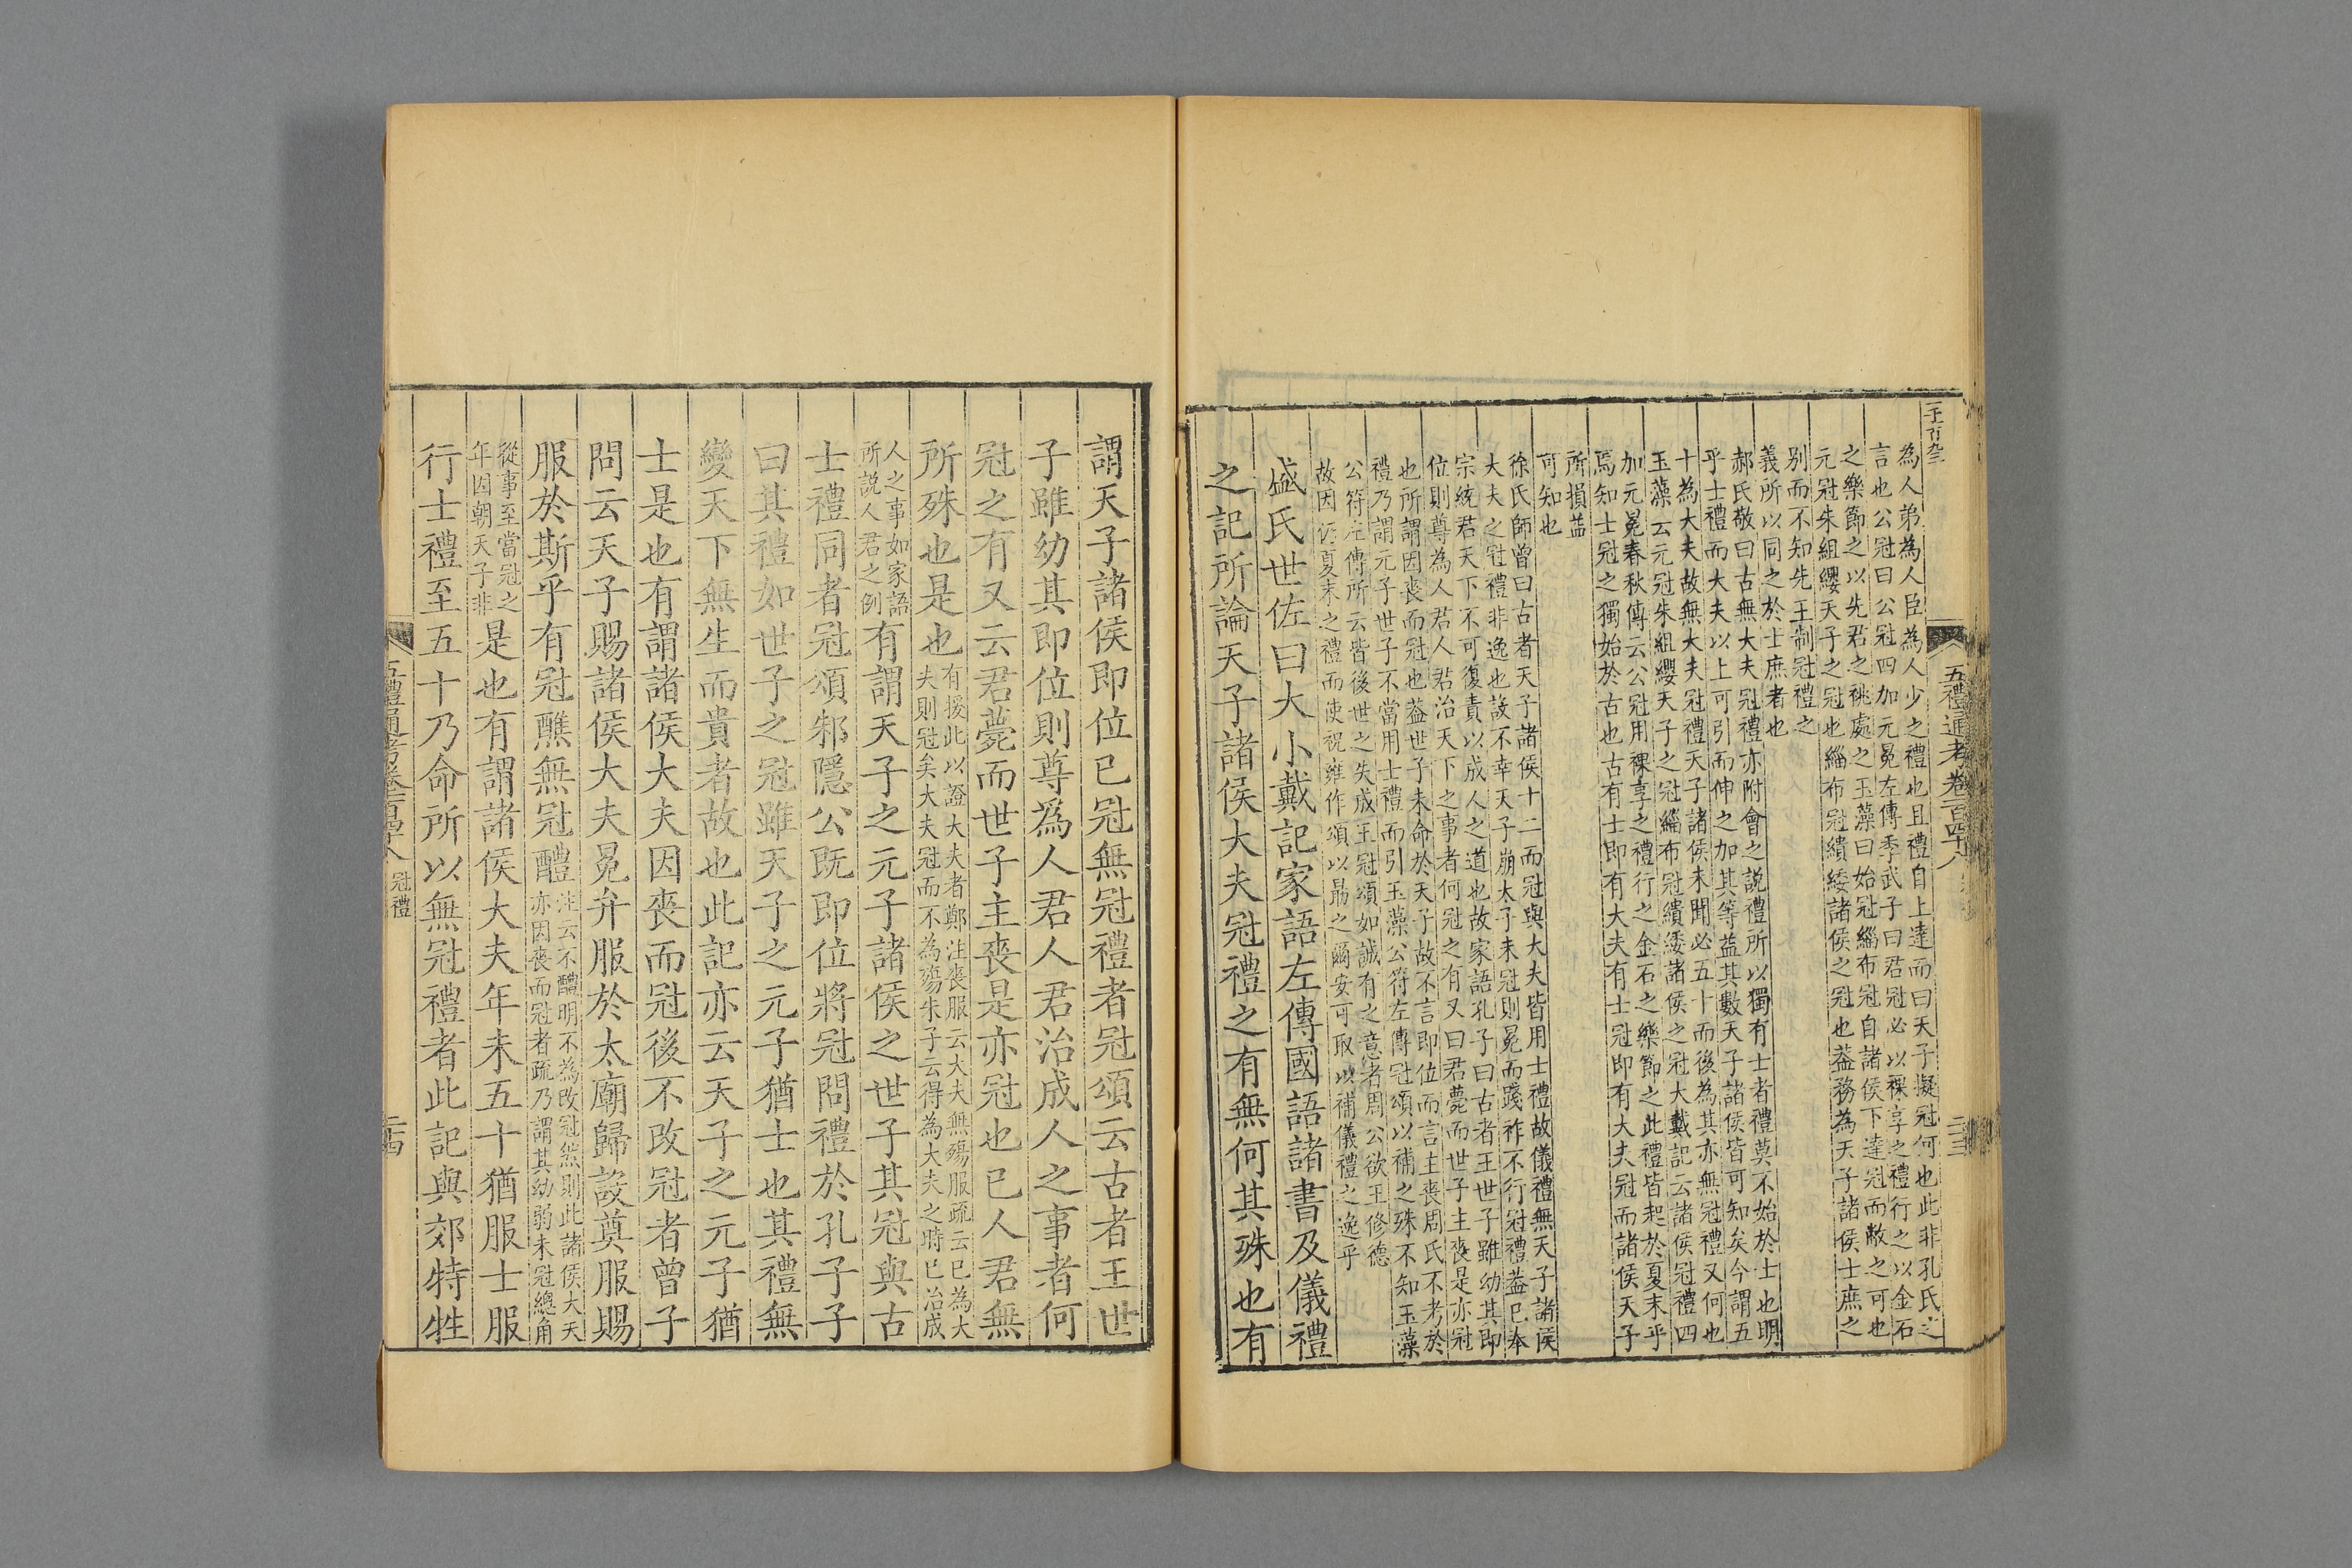 五禮通考卷一百四十八
二十三
為人弟為人臣為人少之禮也且禮自上達而曰天子擬冠何也此非孔氏之
言也公冠曰公冠四加元冕左傳季武子曰君冠必以祼享之禮行之以金石
之樂節之以先君之祧處之玉藻曰始冠緇布冠自諸侯下達冠而敝之可也
元冠朱組纓天子之冠也緇布冠繢緌諸侯之冠也葢務為天子諸侯士庶之
别而不知先王制冠禮之
義所以同之於士庶者也
郝氏敬曰古無大夫冠禮亦附會之說禮所以獨有士者禮莫不始於士也明
乎士禮而大夫以上可引而伸之加其等益其數天子諸侯皆可知矣今謂五
十為大夫故無大夫冠禮天子諸侯未聞必五十而後為其亦無冠禮又何也
玉藻云元冠朱組纓天子之冠緇布冠繢緌諸侯之冠大戴記云諸侯冠禮四
加元冕春秋傳云公冠用祼享之禮行之金石之樂節之此禮皆起於夏末乎
焉知士冠之獨始於古也古有士即有大夫有士冠即有大夫冠而諸侯天子
所損益
可知也
徐氏師曾曰古者天子諸侯十二而冠與大夫皆用士禮故儀禮無天子諸侯
大夫之冠禮非逸也設不幸天子崩太子未冠則冕而踐祚不行冠禮葢已奉
宗統君天下不可復責以成人之道也故家語孔子曰古者王世子雖幼其即
位則尊為人君人君治天下之事者何冠之有又曰君薨而世子主喪是亦冠
也所謂因喪而冠也葢世子未命於天子故不言即位而言主喪周氏不考於
禮乃謂元子世子不當用士禮而引玉藻公符左傳冠頌以補之殊不知玉藻
公符左傳所云皆後世之失成王冠頌如誠有之意者周公欲王修德
故因仍夏末之禮而使祝雍作頌以勗之爾安可取以補儀禮之逸乎
盛氏世佐曰大小戴記家語左傳國語諸書及儀禮
之記所論天子諸侯大夫冠禮之有無何其殊也有
謂天子諸侯即位已冠無冠禮者冠頌云古者王世
子雖幼其即位則尊為人君人君治成人之事者何
冠之有又云君薨而世子主喪是亦冠也已人君無
所殊也是也有援此以證大夫者鄭注喪服云大夫無殤服疏云已為大
夫則冠矣大夫冠而不為殤朱子云得為大夫之時已治成
人之事如家語
所說人君之例有謂天子之元子諸侯之世子其冠與古
士禮同者冠頌邾隱公既即位將冠問禮於孔子子
曰其禮如世子之冠雖天子之元子猶士也其禮無
變天下無生而貴者故也此記亦云天子之元子猶
士是也有謂諸侯大夫因喪而冠後不改冠者曾子
問云天子賜諸侯大夫冕弁服於太廟歸設奠服賜
服於斯乎有冠醮無冠醴注云不醴明不為改冠然則此諸侯大夫
亦因喪而冠者疏乃謂其幼弱未冠總角
從事至當冠之
年因朝天子非是也有謂諸侯大夫年未五十猶服士服
行士禮至五十乃命所以無冠禮者此記與郊特牲
冠禮
二十四